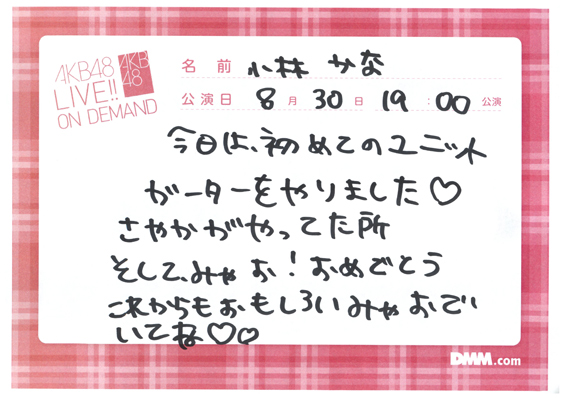 AKB48
LIVE!!
ON DEMAND
AKB
48
名前 小林 かな
公演日 8月30日 19:00 公演
今日は、初めてのユニット
ガーターをやりました♡
さやかがやってた所
そして、みゃお!おめでとう
これからもおもしろいみゃおでい
いてね♡♡
DMM.com